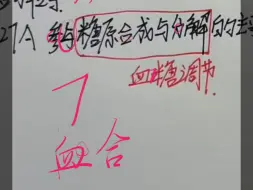 27A 参与糖原合成与分解的
血糖调节
7
血合